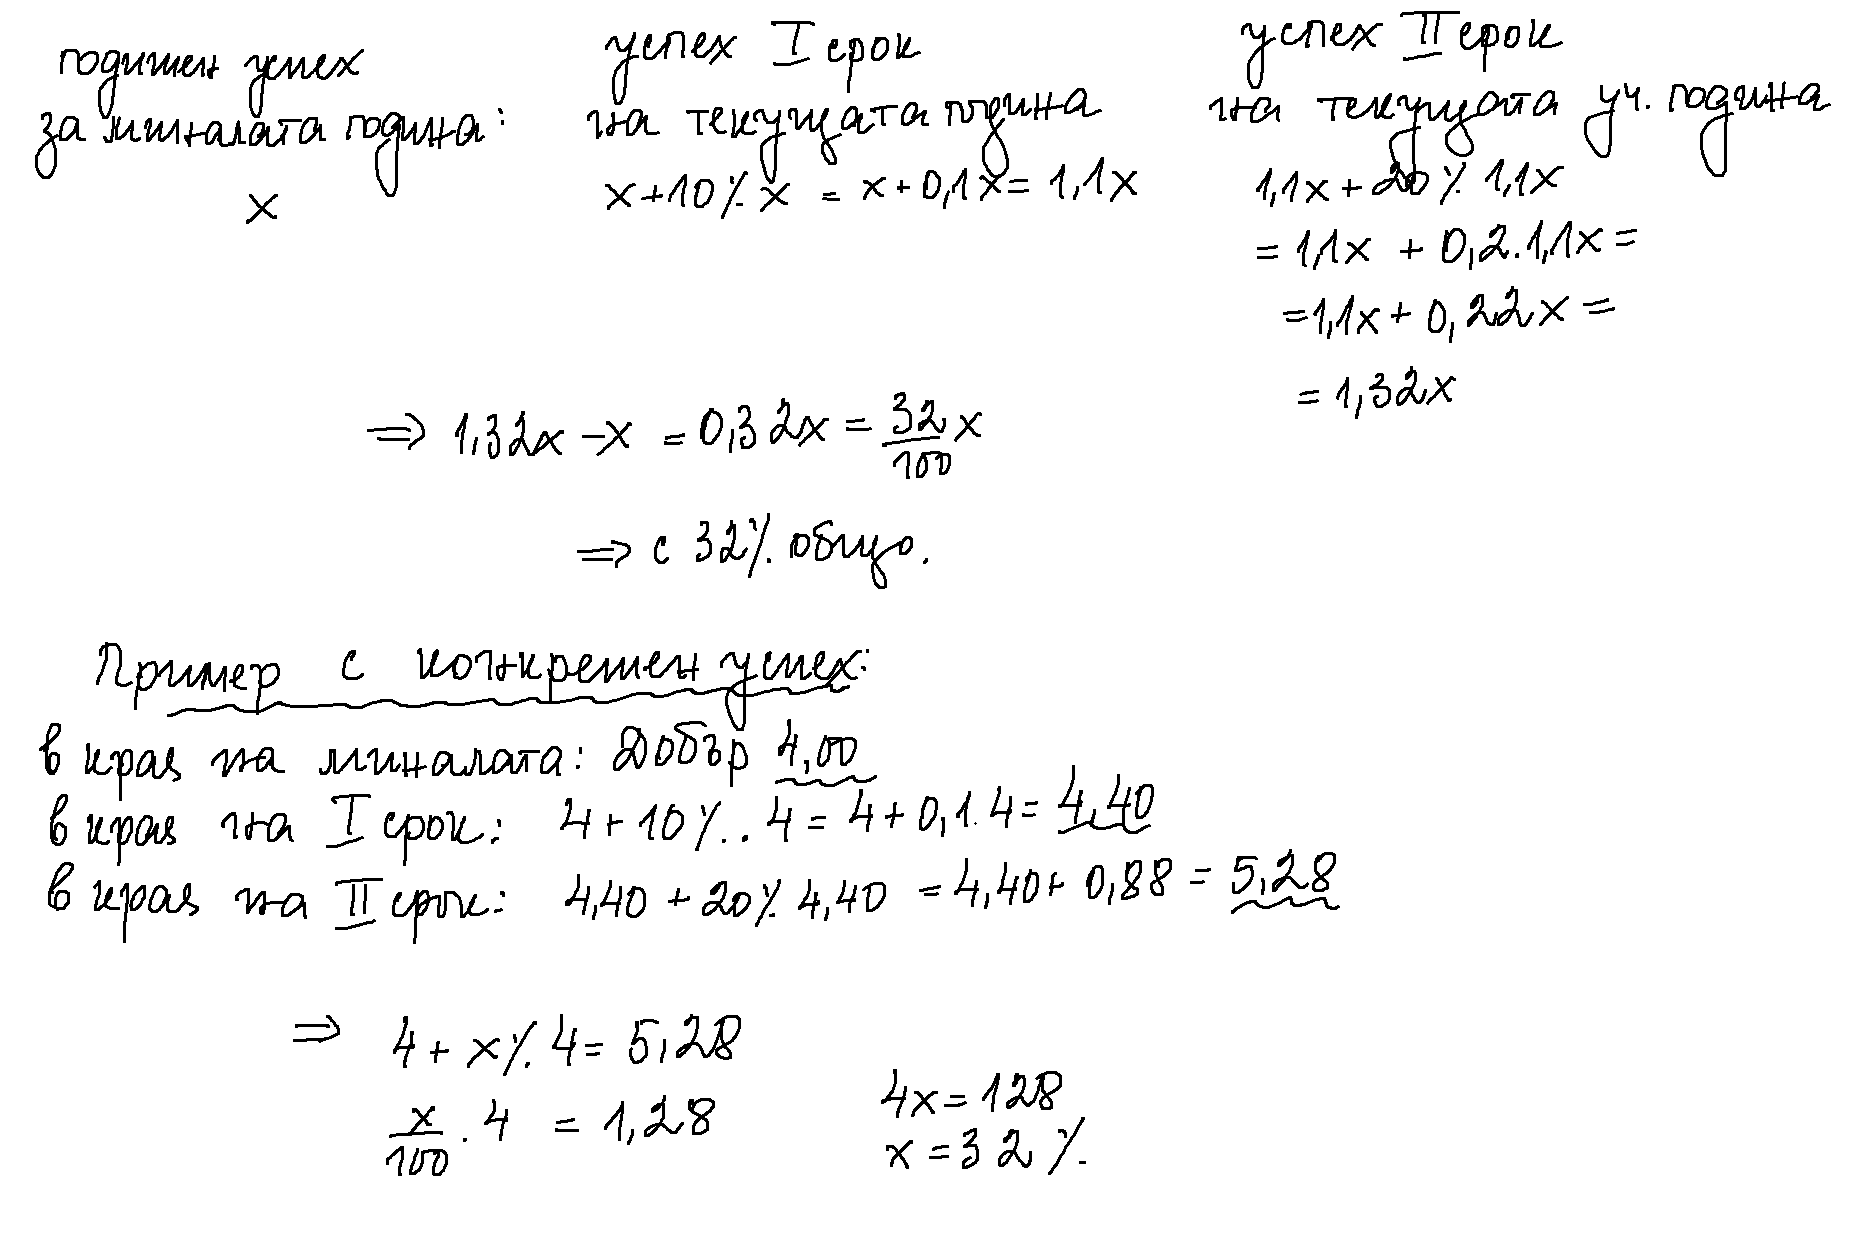 годишен успех
за миналата година:
x
успех I срок
на текущата година
x+10% x = x+0,1x = 1,1x
успех II срок
на текущата уч. година
1,1x + 20% 1,1x
= 1,1x + 0,2.1,1x =
= 1,1x + 0,22x =
= 1,32x
⇒ 1,32x - x = 0,32x = 32/100 x
⇒ с 32% общо.
Пример с конкретен успех:
в края на миналата: Добър 4,00
в края на I срок: 4 + 10% . 4 = 4 + 0,1.4 = 4,40
в края на II срок: 4,40 + 20% 4,40 = 4,40 + 0,88 = 5,28
⇒ 4 + x% 4 = 5,28
x/100 . 4 = 1,28
4x = 128
x = 32%